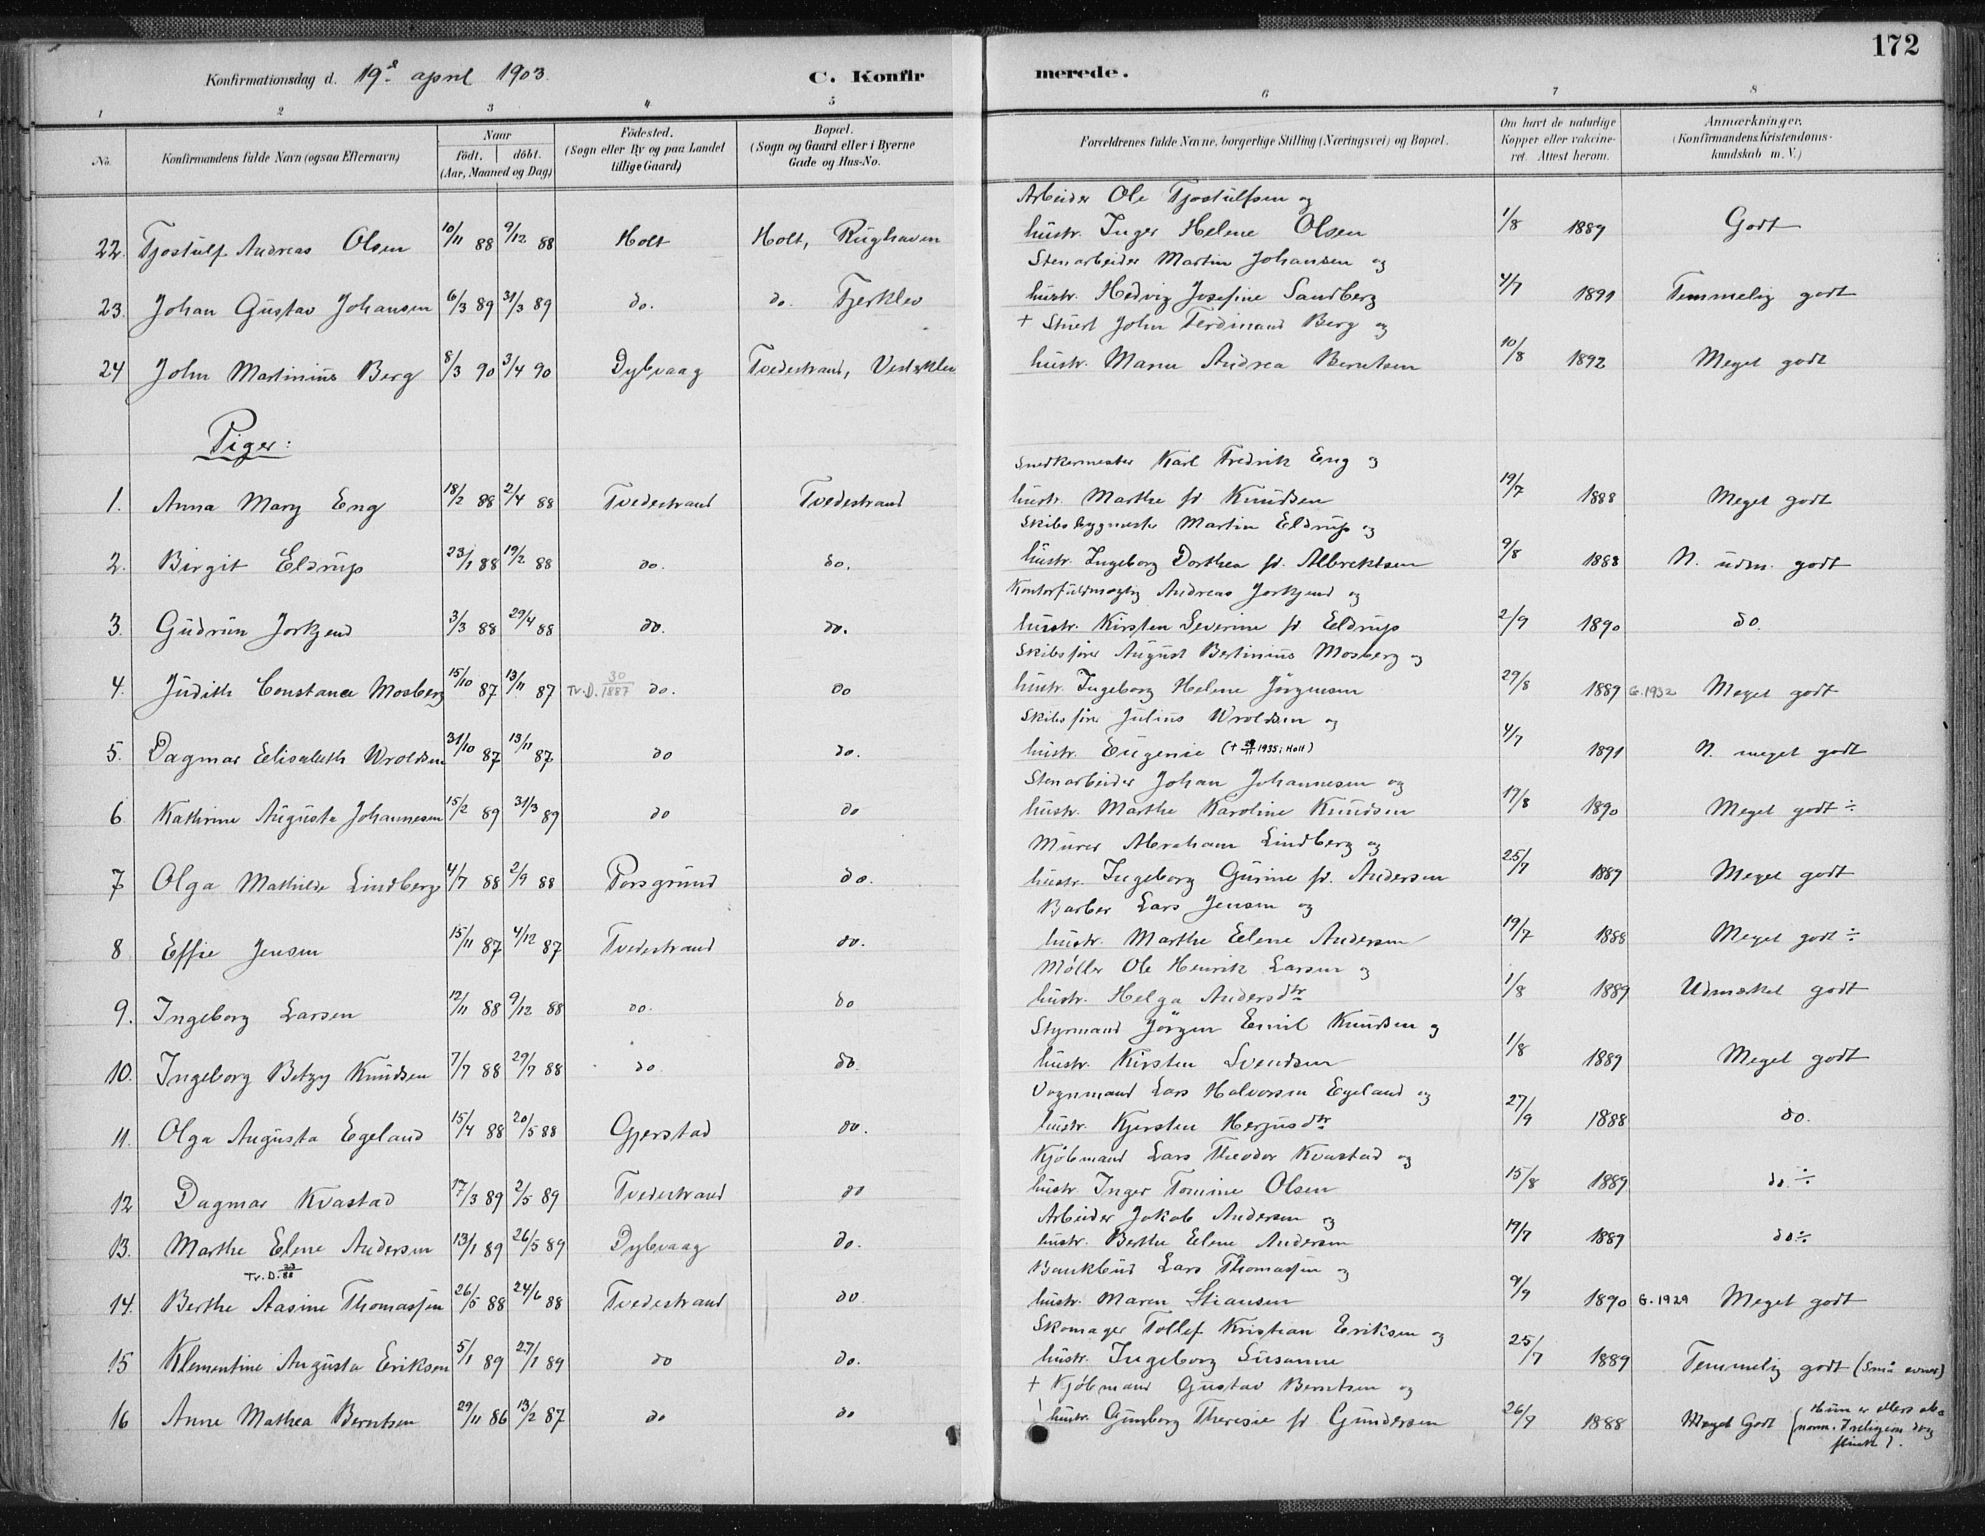 172
Konfirmationsdag d. 19de april 1903. C. Konfirmerede.
1 2 3 4 5 6 7 8
No. Konfirmandens fulde Navn (ogsaa Efternavn) Naar födt. döbt. (Aar, Maaned og Dag) Födested. (Sogn eller By og paa Landet tillige Gaard) Bopæl. (Sogn og Gaard eller i Byerne Gade og Hus-No. Forældrenes fulde Navne, borgerlige Stilling (Næringsvei) og Bopæl. Om havt de naturlige Kopper eller vakcineret. Attest herom. Anmærkninger. (Konfirmandens Kristendomskundskab m. V.)
Arbeider Ole Tjostulfsen og
22. Tjostulf Andreas Olsen 10/11 88 9/12 88 Holt Holt, Rughaven hustr. Inger Helene Olsen 1/8 1889 Godt
Stenarbeider Martin Johansen og
23. Johan Gustav Johansen 6/3 89 31/3 89 do. do. Fjerklev hustr. Hedvig Josefine Sandberg 4/7 1891 Temmelig godt
+ Stuert John Ferdinand Berg og
24 John Martinius Berg 8/3 90 3/4 90 Dybvaag Tvedestrand, Vesterklev hustr. Maren Andrea Berntsen 10/8 1892 Meget godt
Piger:
Snedkermester Karl Fredrik Eng og
1. Anna Mary Eng 18/2 88 2/4 88 Tvedestrand Tvedestrand hustr. Marthe fd. Knudsen 19/7 1888 Meget godt
Skibsbygmester Martin Eldrup og
2. Birgit Eldrup 23/1 88 19/2 88 do. do. hustr. Ingeborg Dorthea fd. Albrektsen 9/8 1888 N. udm. godt
Kontorfuldmægtig Andreas Jorkjend og
3. Gudrun Jorkjend 3/3 88 29/4 88 do. do. hustr. Kirsten Severine fd. Eldrup 2/9 1890 do.
Skibsfører August Bertinius Mosberg og
4. Judith Constance Mosberg 15/10 87 13/11 87 Tv.D. 30/1887 do. do hustr. Ingeborg Helene Jörgensen 29/8 1889 G.1932 Meget godt
Skibsfører Julius Wroldsen og
5. Dagmar Elisabeth Wroldsen 31/10 87 13/11 87 do do. hustr. Eugenie (+ 1935 i Holt) 4/7 1891 N. meget godt
Stenarbeider Johan Johannesen og
6 Kathrine Augusta Johannesen 15/2 89 31/3 89 do do hustr. Marthe Karoline Knudsen 19/8 1890 Meget godt ÷
Murer Abraham Lindberg og
7 Olga Mathilde Lindberg 4/7 88 2/9 88 Porsgrund do. hustr. Ingeborg Gurine fd. Andersen 25/7 1889 Meget godt
Barber Lars Jensen og
8 Effie Jensen 15/11 87 4/12 87 Tvedestrand do. hustr. Marthe Elene Andersen 19/7 1888 Meget godt ÷
Møller Ole Henrik Larsen og
9. Ingeborg Larsen 12/11 88 9/12 88 do. do hustr. Helga Andersdtr 1/8 1889 Udmærket godt
Styrmand Jörgen Emil Knudsen og
10. Ingeborg Betzy Knudsen 7/7 88 29/7 88 do do. hustr. Kirsten Svendsen 1/8 1889 Meget godt
Vognmand Lars Halvorsen Egeland og
11. Olga Augusta Egeland 15/4 88 20/5 88 Gjerstad do. hustr. Kjersten Herjusdtr 27/9 1888 do.
Kjøbmand Lars Theodor Kvastad og
12 Dagmar Kvastad 17/3 89 2/5 89 Tvedestrand do hustr. Inger Tomine Olsen 15/8 1889 do. ÷
Arbeider Jakob Andersen og
13. Marthe Elene Andersen 13/1 89 26/5 89 Dybvaag do. hustr. Berthe Elene Andersen 19/7 1889 do ÷
Tv.D. 23/88 Bankbud Lars Thomassen og
14. Berthe Aasine Thomassen 26/5 88 24/6 88 Tvedestrand do hustr. Maren Stiansen 9/9 1890 G.1929 Meget godt
Skomager Tollef Kristian Eriksen og
15 Klementine Augusta Eriksen 5/1 89 27/1 89 do do. hustr. Ingeborg Susanne 25/7 1889 Temmelig godt (små evner)
+ Kjøbmand Gustav Berntsen og
16 Anne Mathea Berntsen 29/11 86 13/2 87 do do hustr. Gunborg Theresie fd. Gundersen 26/9 1888 Meget Godt (Hun er ellers abnorm. I religion dog flink).